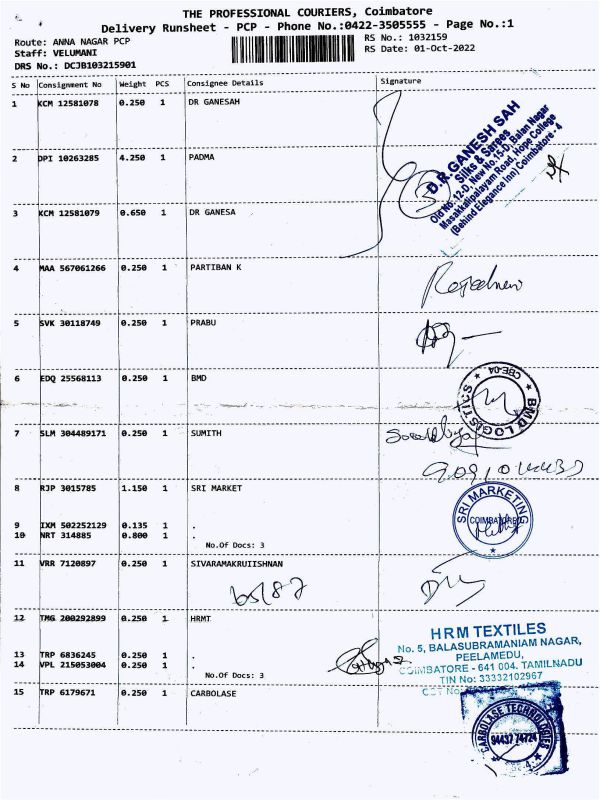 THE PROFESSIONAL COURIERS, Coimbatore
Delivery Runsheet - PCP - Phone No.:0422-3505555 - Page No.:1
Route: ANNA NAGAR PCP
Staff: VELUMANI
DRS No.: DCJB103215901
RS No.: 1032159
RS Date: 01-Oct-2022
S No Consignment No Weight PCS Consignee Details Signature
1 KCM 12581078 0.250 1 DR GANESAH
D.R. GANESH SAH
Silks & Sarees
Old No:12-D, New No.15-D, Balan Nagar
Masakkalipalayam Road, Hope College
(Behind Elegance Inn) Coimbatore - 4
2 DPI 10263285 4.250 1 PADMA
3 KCM 12581079 0.650 1 DR GANESA
4 MAA 567061266 0.250 1 PARTIBAN K
5 SVK 30118749 0.250 1 PRABU
6 EDQ 25568113 0.250 1 BMD
CBE-04
BMD LOGISTICS
7 SLM 304489171 0.250 1 SUMITH
8 RJP 3015785 1.150 1 SRI MARKET
SRI MARKETING
COIMBATORE
9 IXM 502252129 0.135 1 .
10 NRT 314885 0.800 1 .
No.Of Docs: 3
11 VRR 7120897 0.250 1 SIVARAMAKRUIISHNAN
65/87
12 TMG 200292899 0.250 1 HRMT
HRM TEXTILES
No. 5, BALASUBRAMANIAM NAGAR,
PEELAMEDU,
COIMBATORE - 641 004. TAMILNADU
TIN No: 33332102967
13 TRP 6836245 0.250 1 .
14 VPL 215053004 0.250 1 .
No.Of Docs: 3
15 TRP 6179671 0.250 1 CARBOLASE
CARBOLASE TECHNOLOGIES
94437 74724